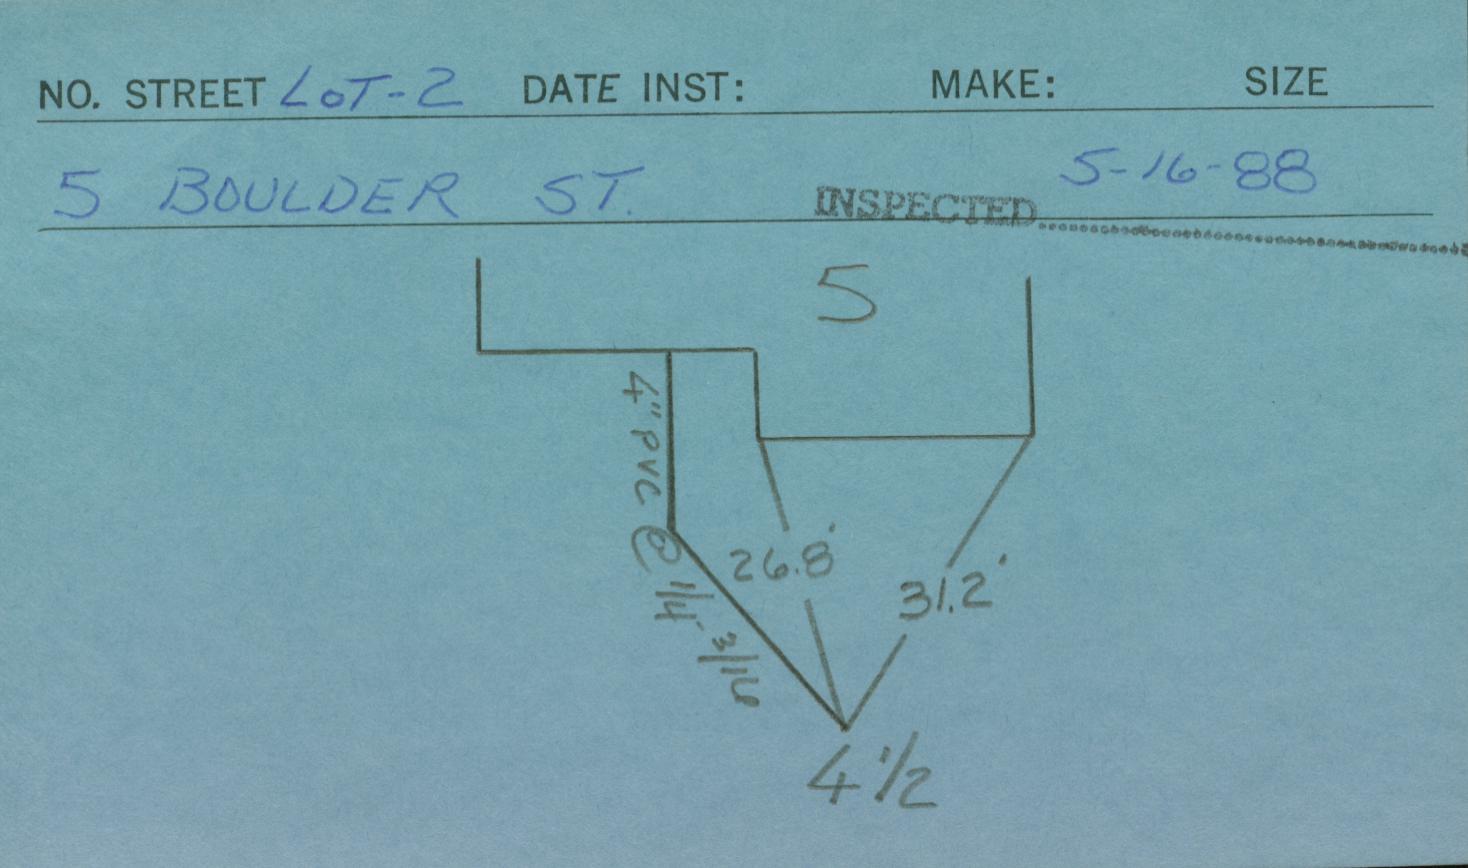 NO. STREET LOT-2 DATE INST: MAKE: SIZE
5 BOULDER ST. INSPECTED 5-16-88
5
4" PVC @ 1/4 - 3/16
26.8'
31.2'
4 1/2